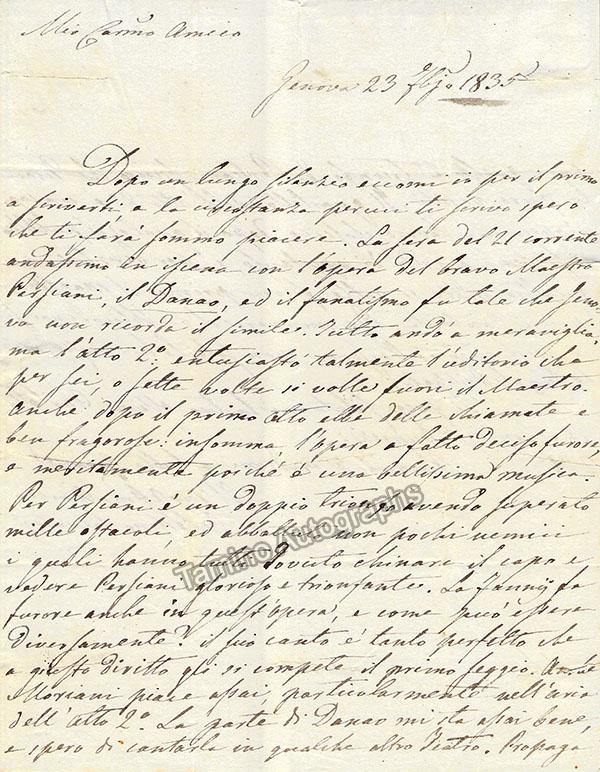 Mio Carmo Amico
Genova 23 1835
Dopo un lungo silenzio eccomi io per il primo
a scriverti, e la circostanza percui ti scrivo spero
che ti farà sommo piacere. La sera del 21 corrente
andassimo in iscena con l'opera del bravo Maestro
Persiani, il Danao, ed il fanatismo fu tale che Geno-
va non ricorda il simile. Tutto andò a meraviglia,
ma l'atto 2º entusiastò talmente l'uditorio che
per sei, o sette volte si volle fuori il Maestro.
Anche dopo il primo Atto ebbe delle chiamate e
ben fragorose: insomma, l'opera a fatto deciso furore,
e meritamente poiché è una bellissima musica.
Per Persiani è un doppio trionfo avendo superato
mille ostacoli, ed abbattuti non pochi nemici
i quali hanno dovuto chinare il capo e
vedere Persiani glorioso e trionfante. La Fanny fa
furore anche in quest'opera, e come può essere
diversamente? il suo canto è tanto perfetto che
a giusto diritto gli si compete il primo seggio. Anche
Moriani piace assai particolarmente nell'aria
dell'atto 2º. La parte di Danao mi sta assai bene,
e spero di cantarla in qualche altro Teatro. Propaga
Tamino Autographs